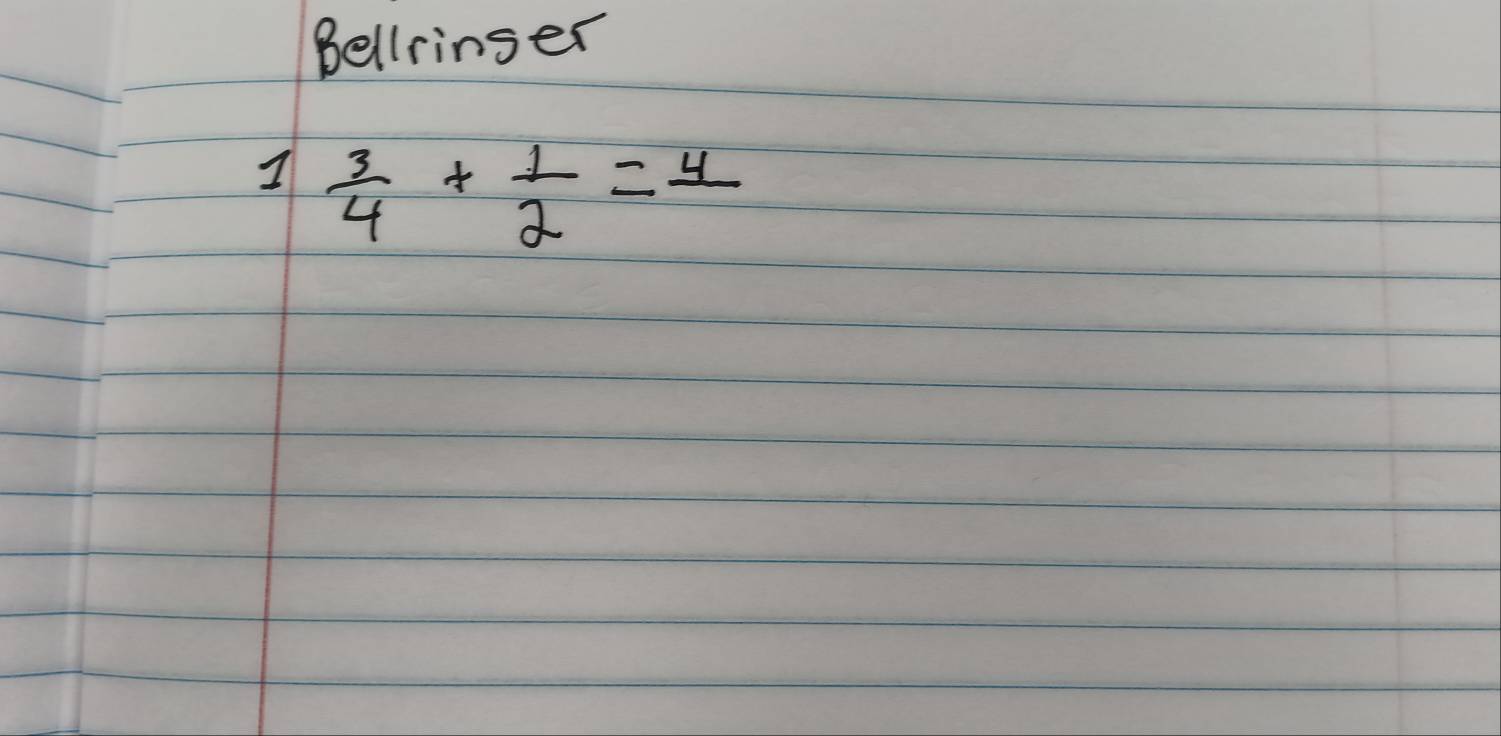 Bellringer
1 3/4 + 1/2 = 4/